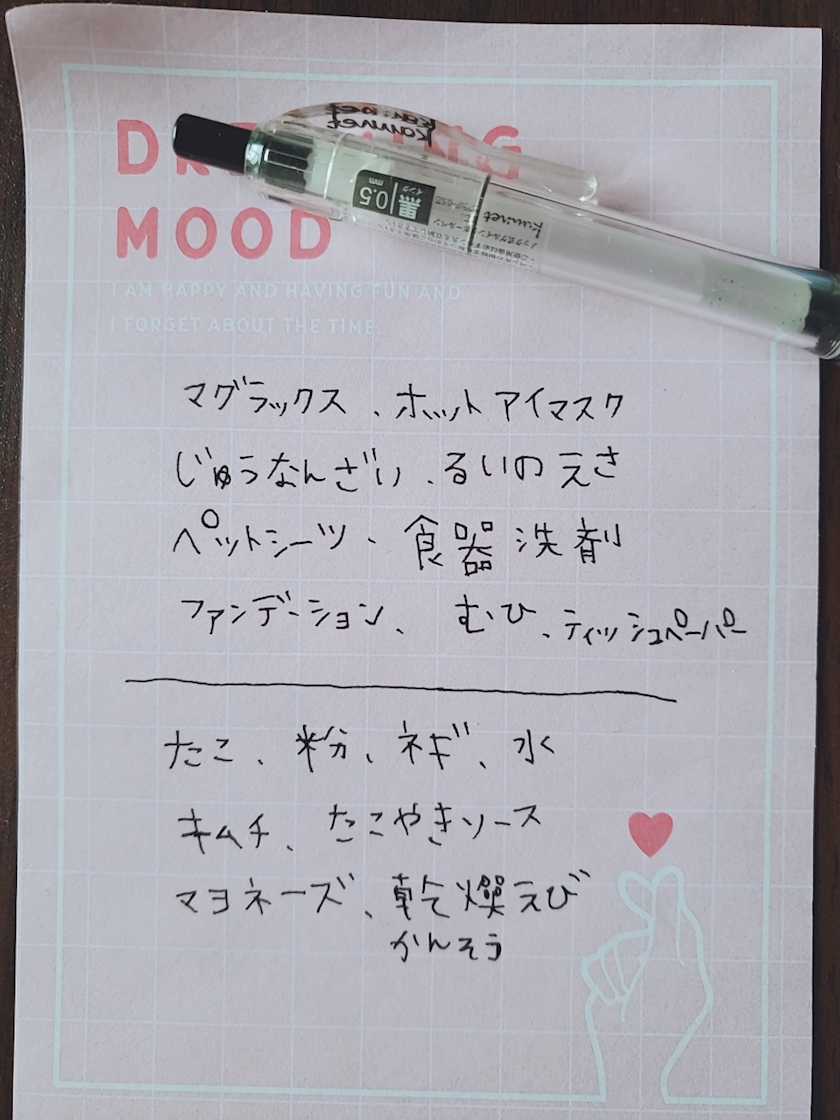 kaunet
MOOD
黒 0.5 mm
インク
kaunet
I AM HAPPY AND HAVING FUN AND
I FORGET ABOUT THE TIME.
マグラックス、ホットアイマスク
じゅうなんざい、るいのえさ
ペットシーツ、食器洗剤
ファンデーション、むひ、ティッシュペーパー
たこ、粉、ネギ、水
キムチ、たこやきソース
マヨネーズ、乾燥えび
かんそう